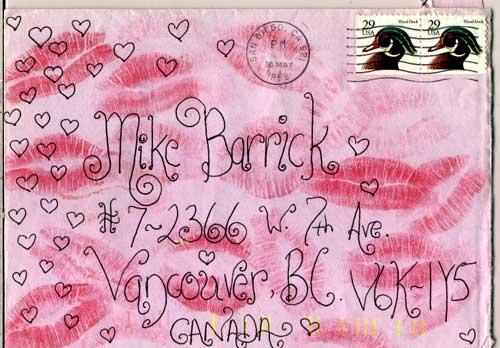 SAN DIEGO, CA 921
PM
30 MAY
29
USA
Wood Duck
29
USA
Wood Duck
Mike Barrick
#7-2366 W. 7th Ave.
Vancouver, BC. V6K-1Y5
CANADA